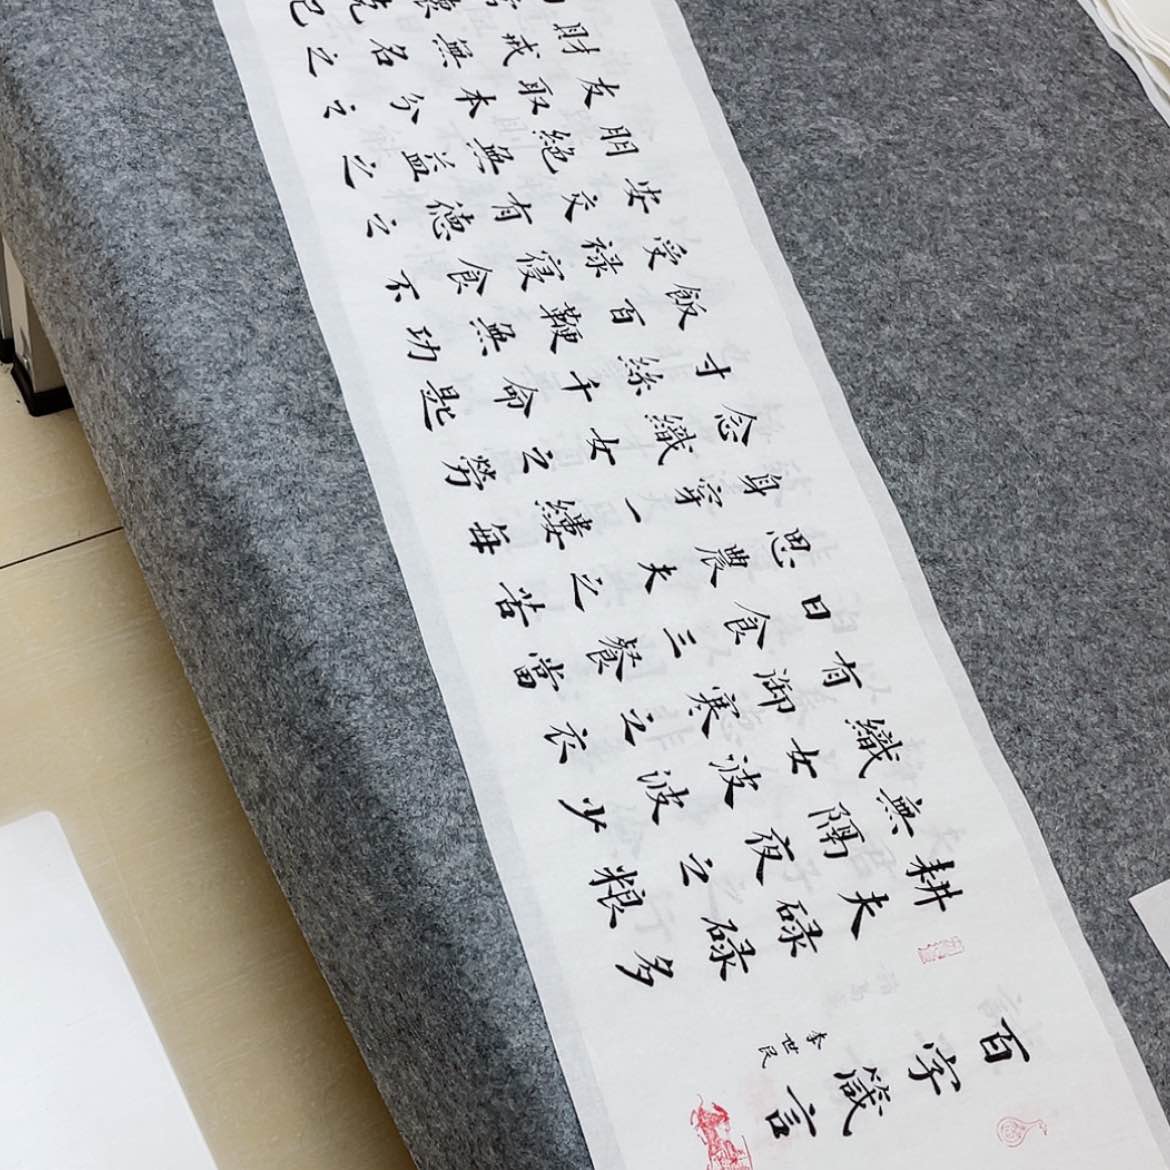 百字箴言
李世民
耕夫碌碌多
無隔夜之粮
織女波波少
有御寒之衣
日食三餐當
思農夫之苦
身穿一縷每
念織女之勞
寸絲千命匙
飯百鞭無功
受禄寝食不
安交有德之
朋絕無益之
友取本分之
財戒無名之
懷克己